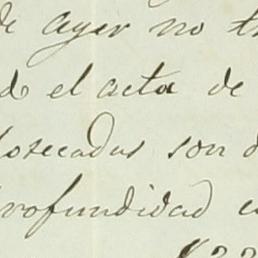 de ayer no t
d el acta de
osecadas son d
rofundidad e